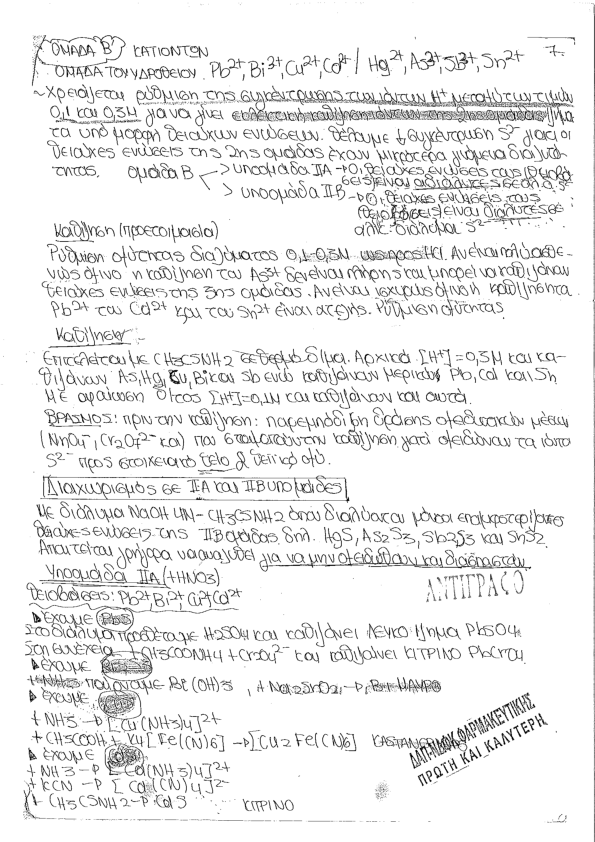 ΟΜΑΔΑ "Β" ΚΑΤΙΟΝΤΩΝ 7.
ΟΜΑΔΑ ΤΟΥ ΥΔΡΟΘΕΙΟΥ. Pb2+, Bi3+, Cu2+, Cd2+ / Hg2+, As3+, Sb3+, Sn2+
~Χρειάζεται ρύθμιση της συγκέντρωσης των ιόντων H+ μεταξύ των τιμών
0,1 και 0,3Μ για να γίνει εκλεκτική καθίζηση ιόντων της 2ης ομάδας
τα υπό μορφή θειούχων ενώσεων. Θέλουμε ↓ συγκέντρωση S2- γιατί οι
θειούχες ενώσεις της 2ης ομάδας έχουν μικρότερα γινόμενα διαλυτό-
τητας. ομάδα Β > υποομάδα ΙΙΑ → οι θειούχες ενώσεις τους
είναι αδιάλυτες σε
> υποομάδα ΙΙΒ → οι θειούχες ενώσεις τους
είναι διαλυτές σε
αλκ. διάλυμα S2-
Καθίζηση (προετοιμασία)
Ρύθμιση οξύτητας διαλύματος 0,1-0,3Μ ως προς HCl. Αν είναι πολύ ασθε-
νώς όξινο η καθίζηση του As3+ δεν είναι πλήρης και μπορεί να καθιζάνουν
θειούχες ενώσεις της 3ης ομάδας. Αν είναι ισχυρώς όξινο η καθίζηση τα
Pb2+ του Cd2+ και του Sn2+ είναι ατελής. Ρύθμιση οξύτητας
Καθίζηση -
Επιτελείται με CH3CSNH2 σε θερμό δ/μα. Αρχικά [H+]=0,3Μ και κα-
θιζάνουν As, Hg, Cu, Bi και Sb ενώ καθιζάνουν μερικώς Pb, Cd και Sn
Με αραίωση [H+]=0,1Μ και καθιζάνουν και αυτά.
ΒΡΑΣΜΟΣ: πριν την καθίζηση: παρεμπόδιση δράσης οξειδωτικών μέσων
(MnO4-, Cr2O72- κα) που σταματούν την καθίζηση γιατί οξειδώνουν τα ιόντα
S2- προς στοιχειακό θείο ή θειικό οξύ.
Διαχωρισμός σε ΙΙΑ και ΙΙΒ υποομάδες
Με διάλυμα NaOH 4N - CH3CSNH2 όπου διαλύονται μόνο οι επαμφοτερίζουσες
θειούχες ενώσεις της ΙΙΒ ομάδας δηλ. HgS, As2S3, Sb2S3 και SnS2.
Απαιτείται γρήγορα να αναλυθεί για να μην οξειδωθούν και διασπαστούν
Υποομάδα ΙΙΑ (+HNO3)
Θειοβάσεις: Pb2+, Bi3+, Cu2+ Cd2+ ΑΝΤΙΓΡΑΦΟ
▶ έχουμε PbS
Στο διάλυμα προσθέταμε H2SO4 και καθιζάνει ΛΕΥΚΟ ίζημα PbSO4.
Στη συνέχεια + CH3COONH4 + CrO42- και καθιζάνει ΚΙΤΡΙΝΟ PbCrO4.
▶ έχουμε
+ NH3 παίρνουμε Bi(OH)3, + Na2SnO2 → Bi ΜΑΥΡΟ
▶ έχουμε
+ NH3 → [Cu(NH3)4]2+
+ CH3COOH + K4[Fe(CN)6] → [Cu2Fe(CN)6]
▶ έχουμε
+ NH3 → [Cd(NH3)4]2+
+ KCN → [Cd(CN)4]2-
+ CH3CSNH2 → CdS ΚΙΤΡΙΝΟ
ΔΑΠ ΝΔΦΚ ΦΑΡΜΑΚΕΥΤΙΚΗΣ
ΠΡΩΤΗ ΚΑΙ ΚΑΛΥΤΕΡΗ